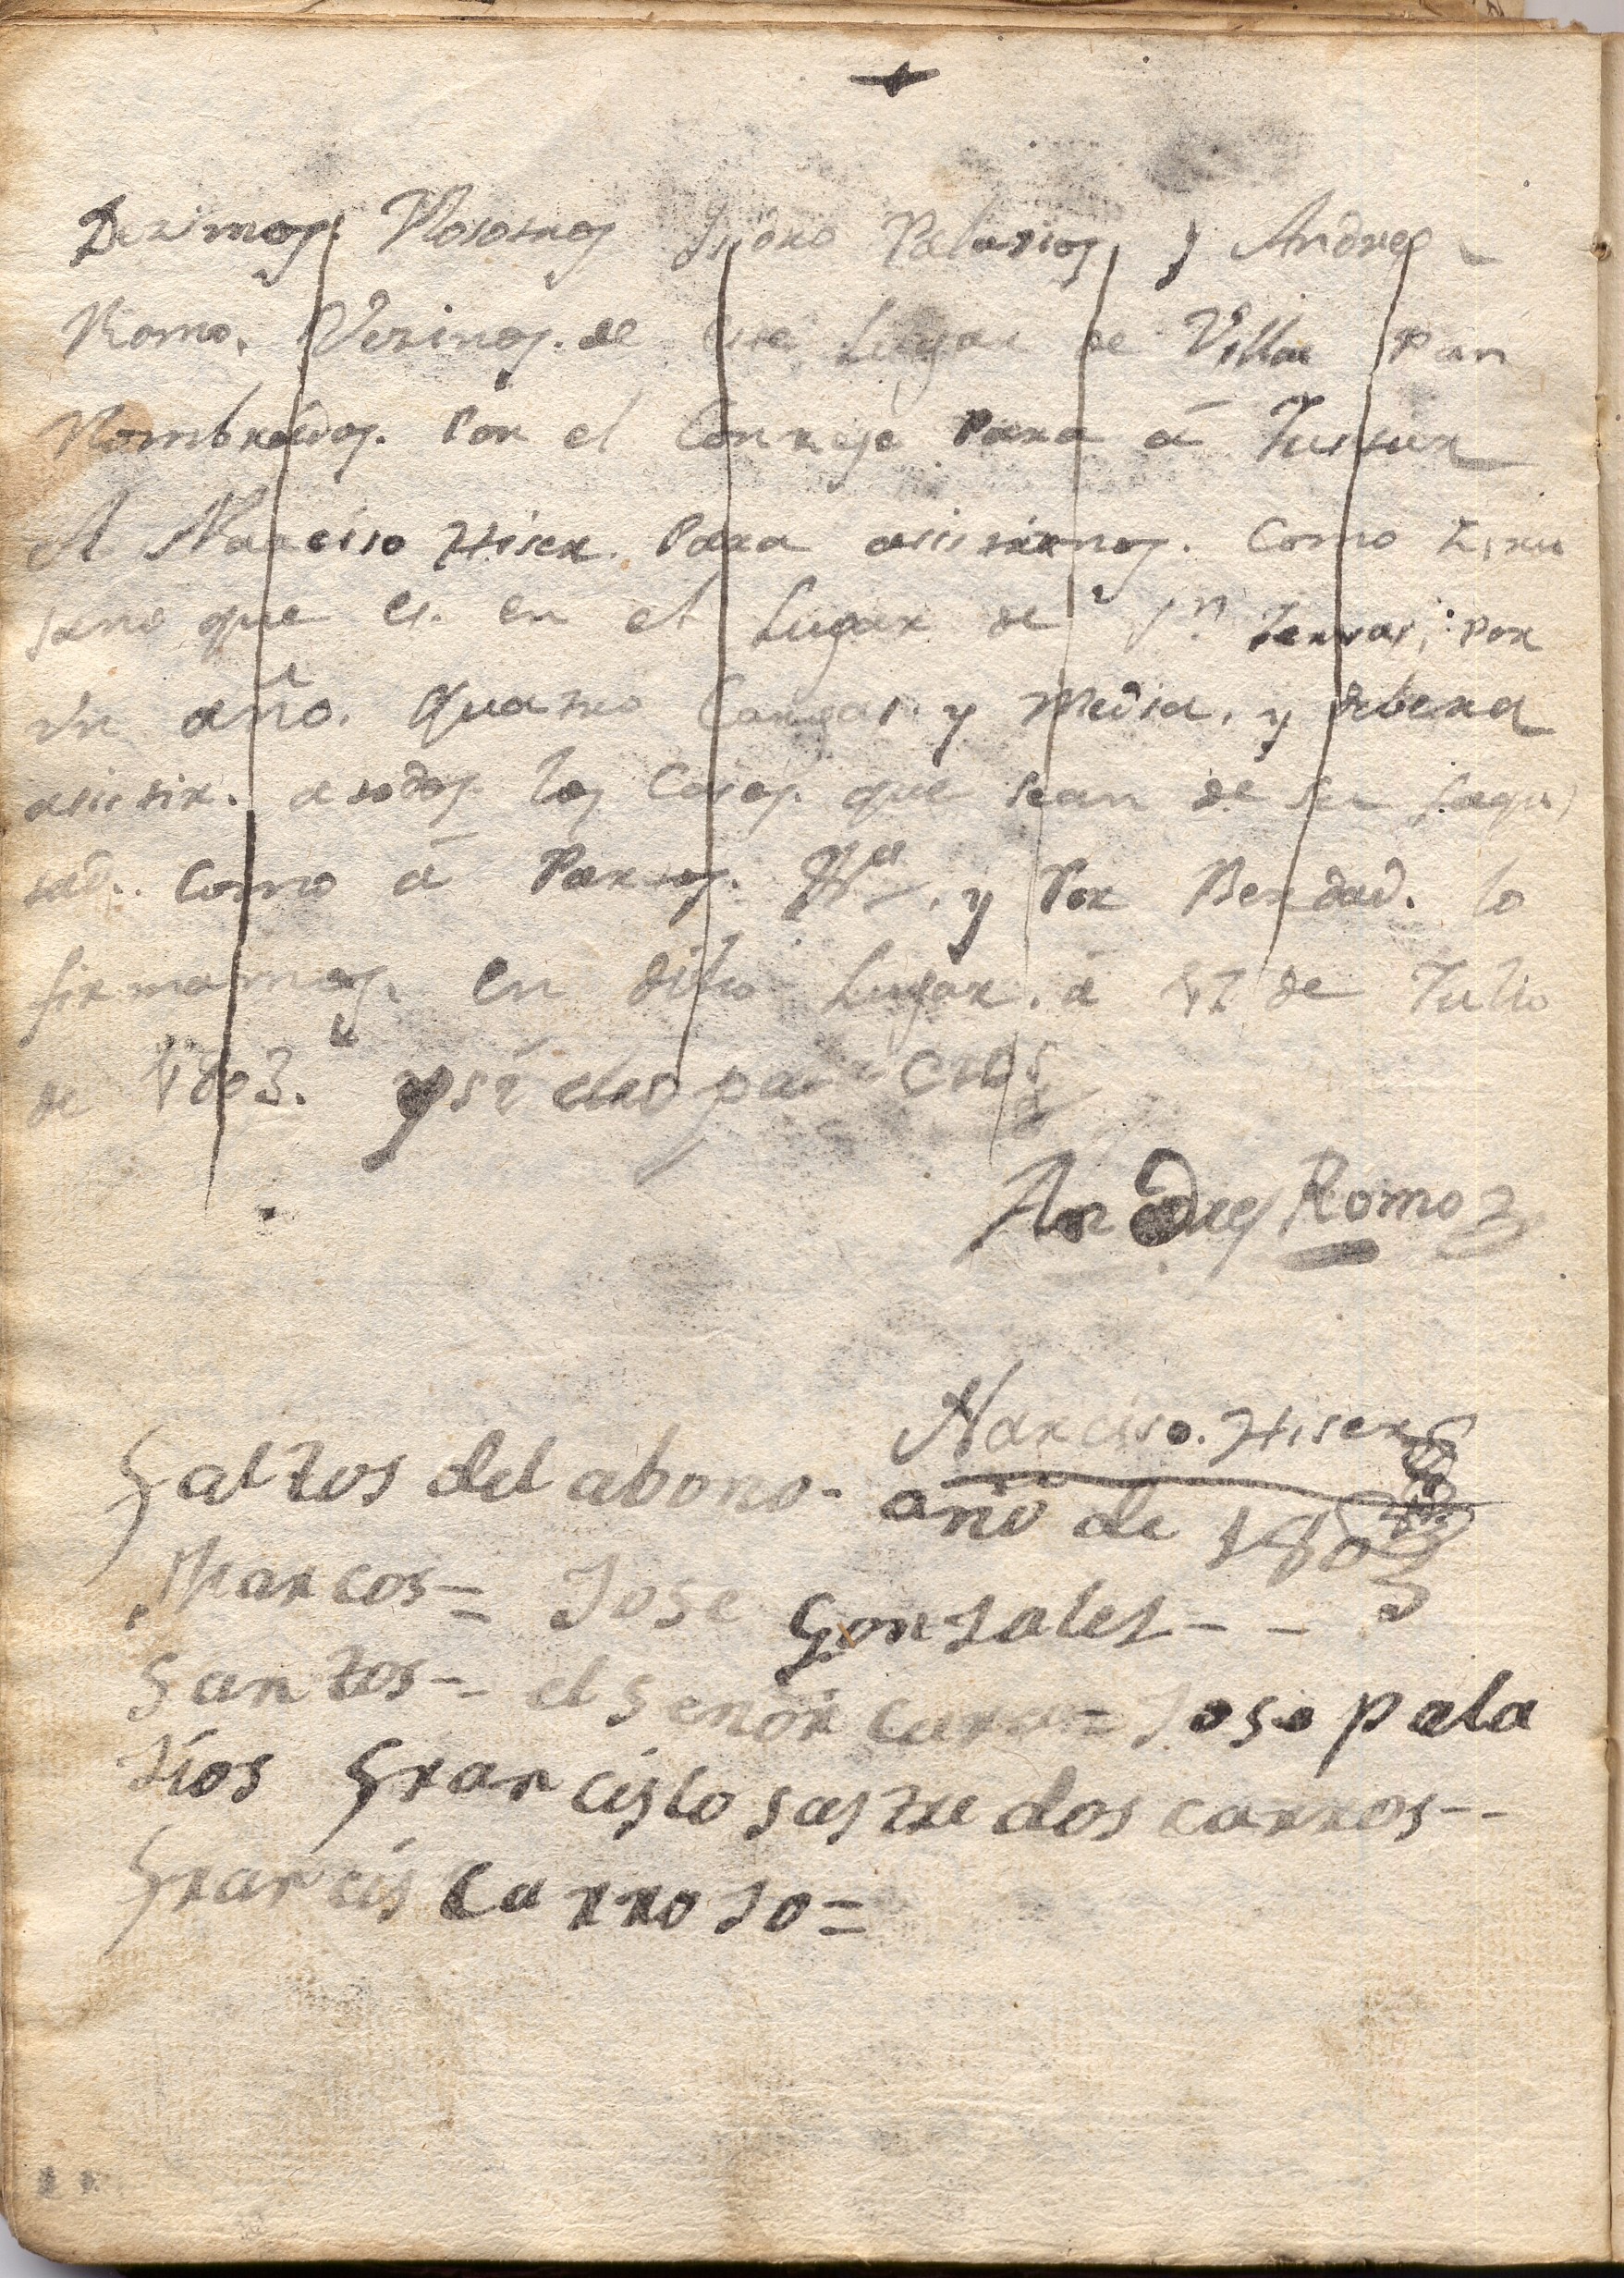 Dezimos. Nosotros Ysidro Palazios y Andres
Romo. Vezinos. de este Lugar de Villar Pan
Nombrados. Por el Conzejo Para á Justar
A Narciso Hiser. Para asistirnos. Como Ziru
jano que es. en el Lugar de Sn. Zervas, por
vn año. Quatro Cargas. y Media. y debera
asistir. a todos los Casos. que sean de su facul
tad. Como á Partos. &a. y Por Berdad. lo
firmamos. en dicho Lugar. á 17 de Julio
de 1803.
Andres Romo
Narciso. Hiser
Faltos del abono - año de 1803
Marcos = Jose Gonzales - -
Santos - - el señor cura = Jose pala
zios Francisco sastre dos carros - -
Francis Carrozo =